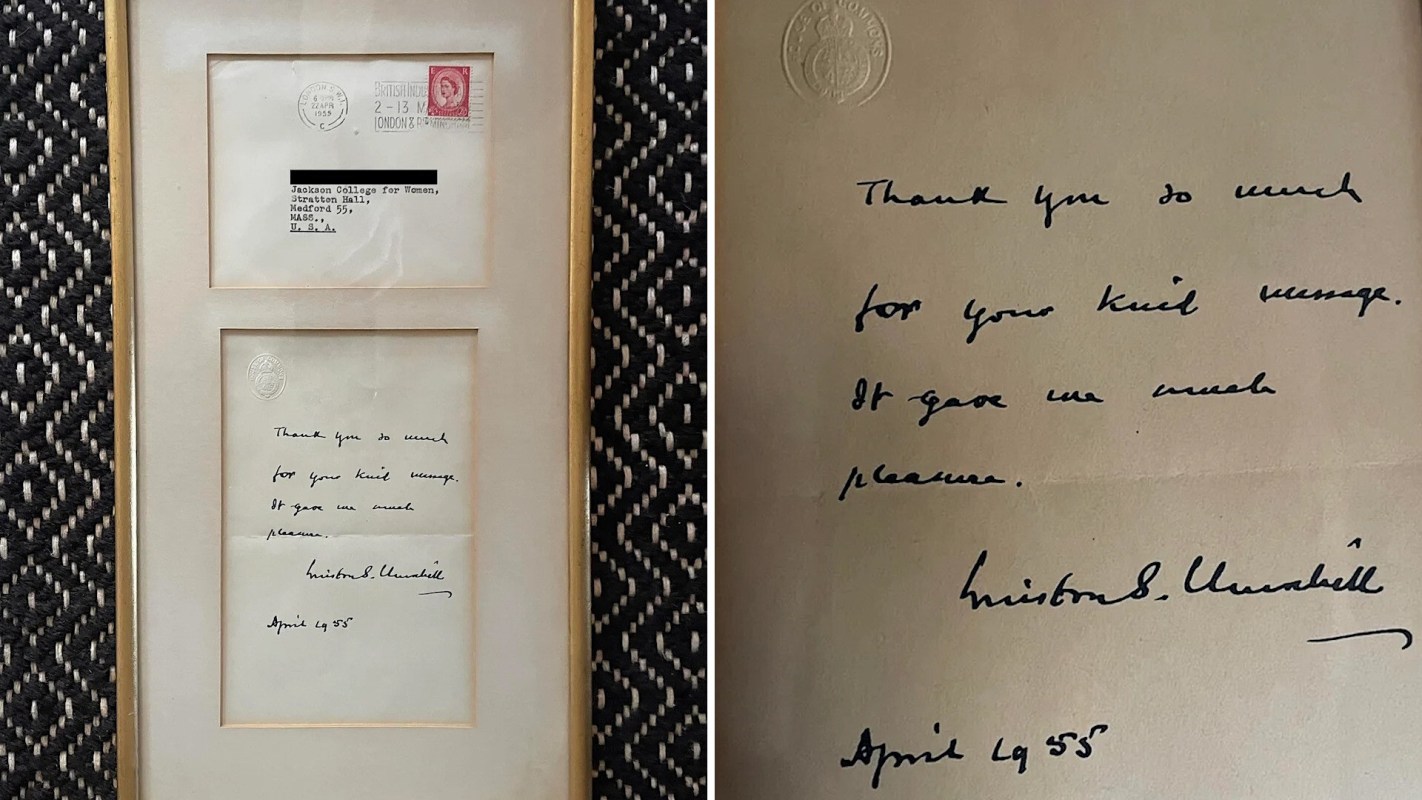 LONDON S.W.1
22 APR
1955
C
BRITISH INDU
2 - 13 M
LONDON &
E R
Jackson College for Women,
Stratton Hall,
Medford 55,
MASS.,
U. S. A.
Thank you so much
for your kind message.
It gave me much
pleasure.
Winston S. Churchill
April 1955
HOUSE OF COMMONS
Thank you so much
for your kind message.
It gave me much
pleasure.
Winston S. Churchill
April 1955